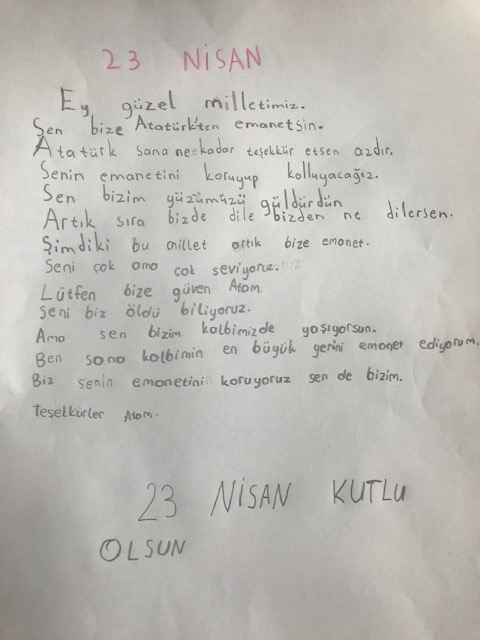 23 NİSAN
Ey güzel milletimiz.
Sen bize Atatürk'ten emanetsin.
Atatürk sana ne kadar teşekkür etsen azdır.
Senin emanetini koruyup kolluyacağız.
Sen bizim yüzümüzü güldürdün
Artık sıra bizde dile bizden ne dilersen.
Şimdiki bu millet artık bize emanet.
Seni çok ama çok seviyoruz.
Lütfen bize güven Atam.
Seni biz öldü biliyoruz.
Ama sen bizim kalbimizde yaşıyorsun.
Ben sana kalbimin en büyük yerini emanet ediyorum.
Biz senin emanetini koruyoruz sen de bizim.
Teşekkürler Atam.
23 NİSAN KUTLU
OLSUN